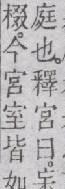 庭也。釋宮曰。杗
棳。今宮室皆如